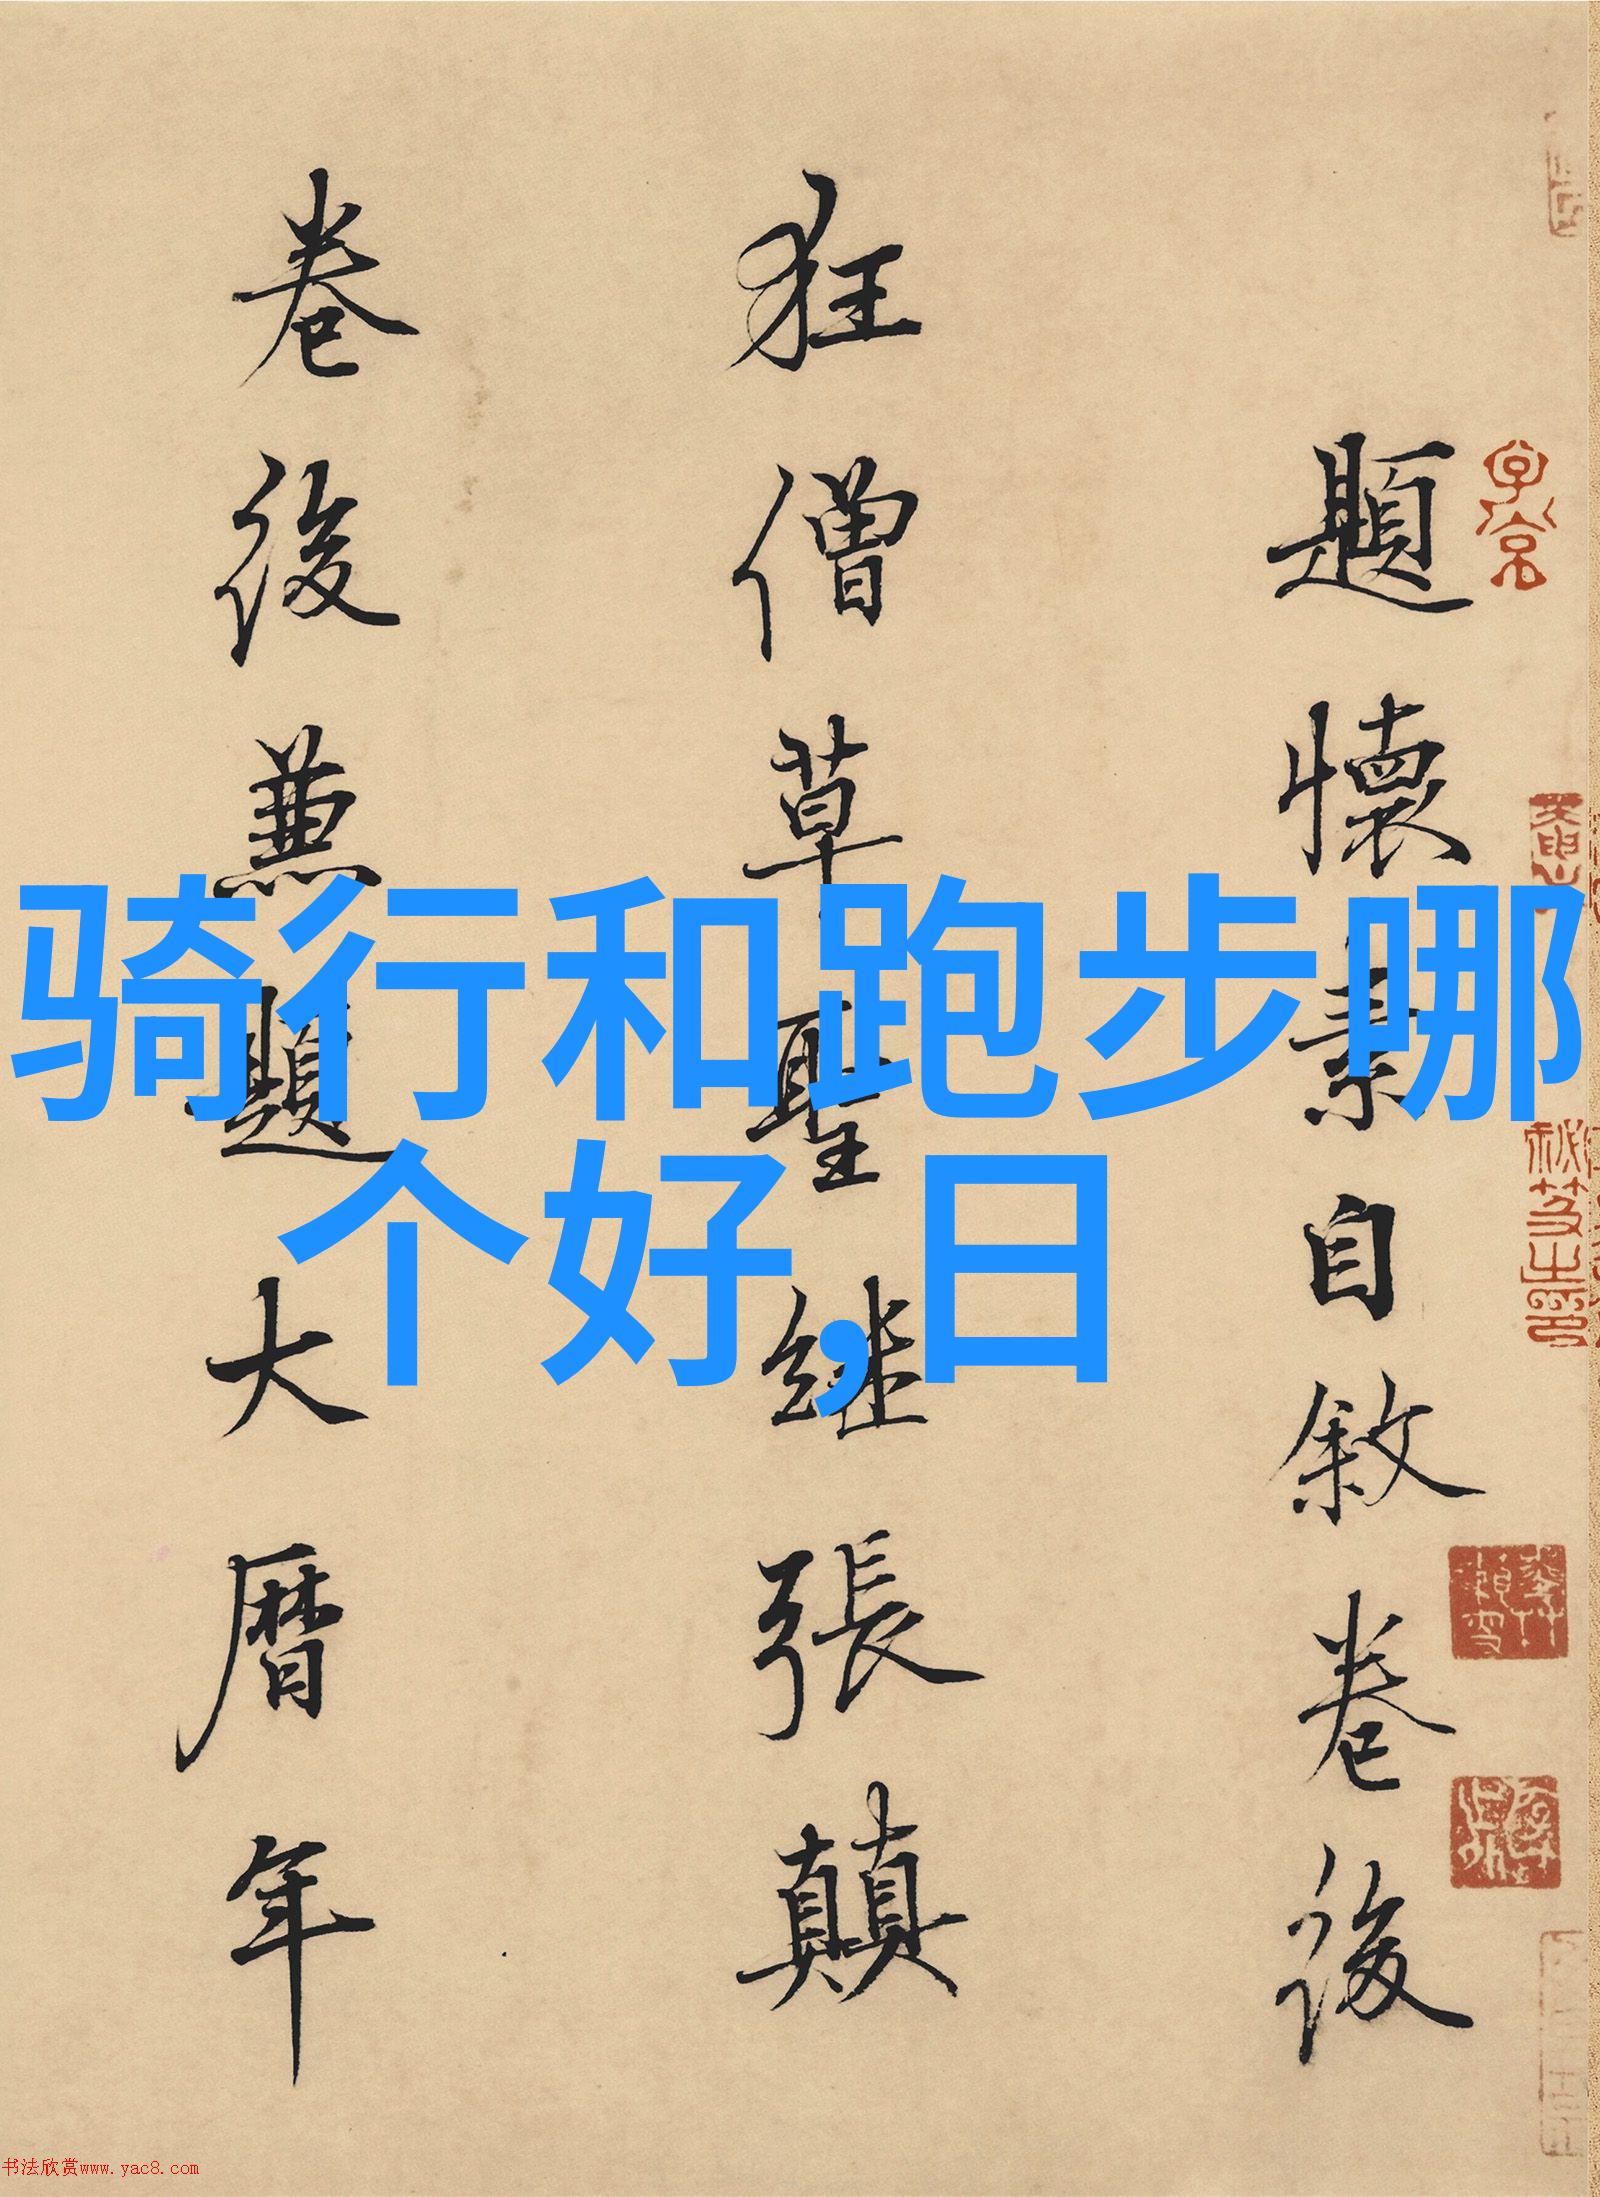 題懷素自敘卷後
狂僧草聖継張顛
卷後兼題大曆年
骑行和跑步哪
个好,日
书法欣赏www.yac8.com